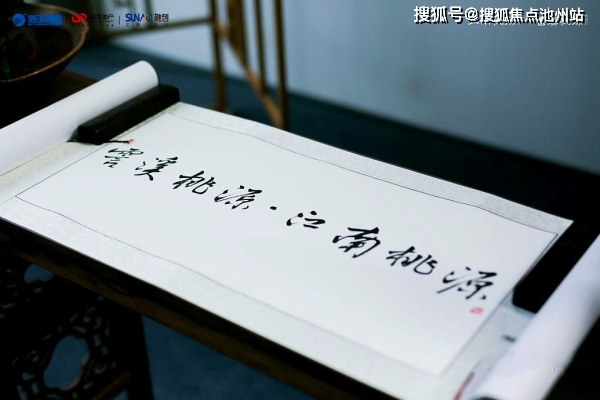 搜狐号@搜狐焦点池州站
SUNAC 融创
雲溪桃源·江南桃源